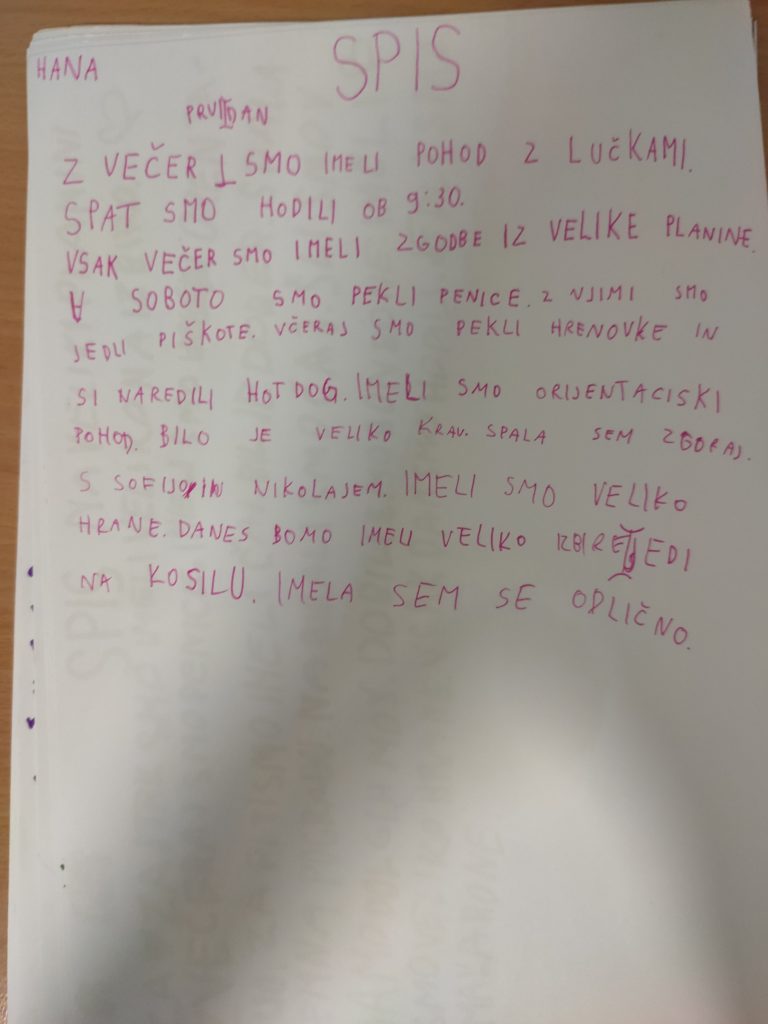 HANA
SPIS
PRVI DAN
ZVEČER SMO IMELI POHOD Z LUČKAMI.
SPAT SMO HODILI OB 9:30.
VSAK VEČER SMO IMELI ZGODBE IZ VELIKE PLANINE.
V SOBOTO SMO PEKLI PENICE. Z NJIMI SMO
JEDLI PIŠKOTE. VČERAJ SMO PEKLI HRENOVKE IN
SI NAREDILI HOT DOG. IMELI SMO ORIJENTACISKI
POHOD. BILO JE VELIKO KRAV. SPALA SEM ZGORAJ.
S SOFIJO IN NIKOLAJEM. IMELI SMO VELIKO
HRANE. DANES BOMO IMELI VELIKO JEDI
NA KOSILU. IMELA SEM SE ODLIČNO.